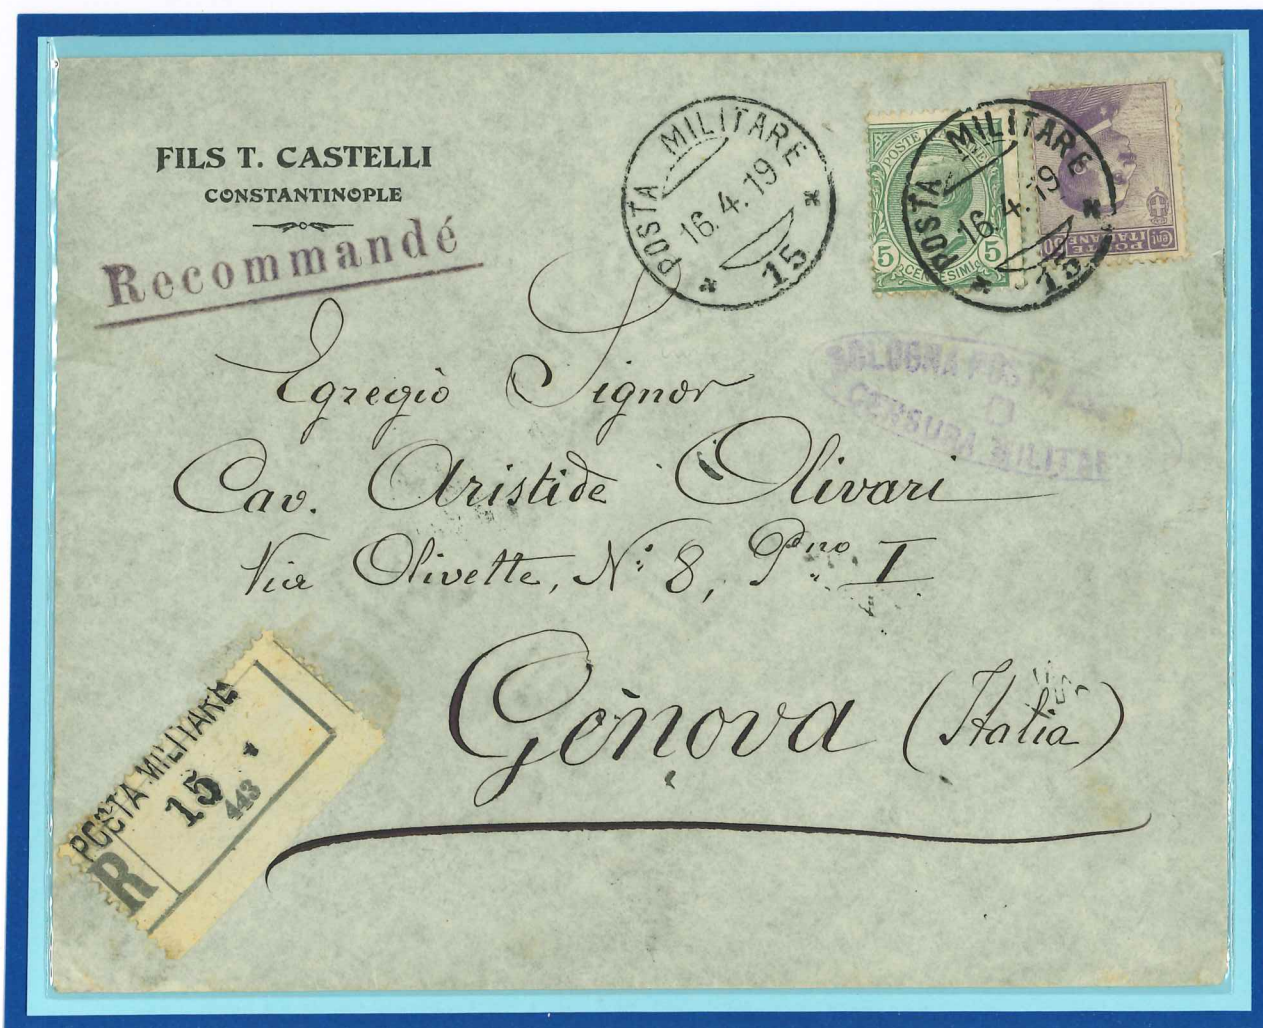 FILS T. CASTELLI
CONSTANTINOPLE
Recommandé
POSTA MILITARE
16.4.19
15
POSTE
5 5
CENTESIMI
POSTA MILITARE
16.4.19
15
POSTE ITALIANE
Cent. 50
BOLOGNA POSTA
CENSURA MILITARE
Egregio Signor
Cav. Aristide Olivari
Via Olivette, N: 8, Pno I
Genova (Italia)
POSTA MILITARE
15
443
R